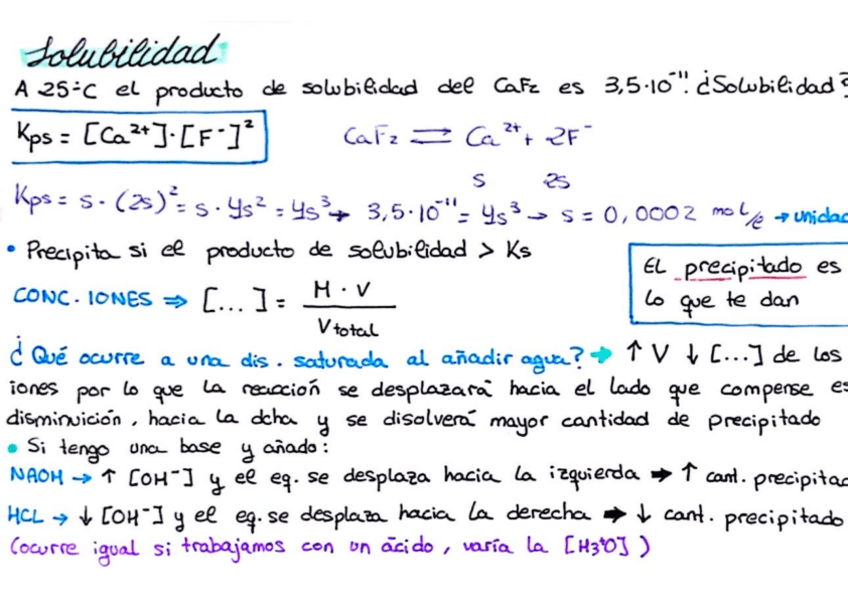 Solubilidad
A 25ºC el producto de solubilidad del CaF₂ es 3,5·10⁻¹¹. ¿Solubilidad?
Kps = [Ca²⁺]·[F⁻]²
CaF₂ ⇌ Ca²⁺ + 2F⁻
s 2s
Kps = s·(2s)² = s·4s² = 4s³ → 3,5·10⁻¹¹ = 4s³ → s = 0,0002 mol/l → unidad
• Precipita si el producto de solubilidad > Ks
EL precipitado es
lo que te dan
CONC. IONES ⇒ [...] = M · V / V total
¿Qué ocurre a una dis. saturada al añadir agua? → ↑ V ↓ [...] de los
iones por lo que la reacción se desplazará hacia el lado que compense es
disminuición, hacia la dcha y se disolverá mayor cantidad de precipitado
• Si tengo una base y añado:
NAOH → ↑ [OH⁻] y el eq. se desplaza hacia la izquierda → ↑ cant. precipitad
HCL → ↓ [OH⁻] y el eq. se desplaza hacia la derecha → ↓ cant. precipitado
(ocurre igual si trabajamos con un ácido, varía la [H₃⁺O])